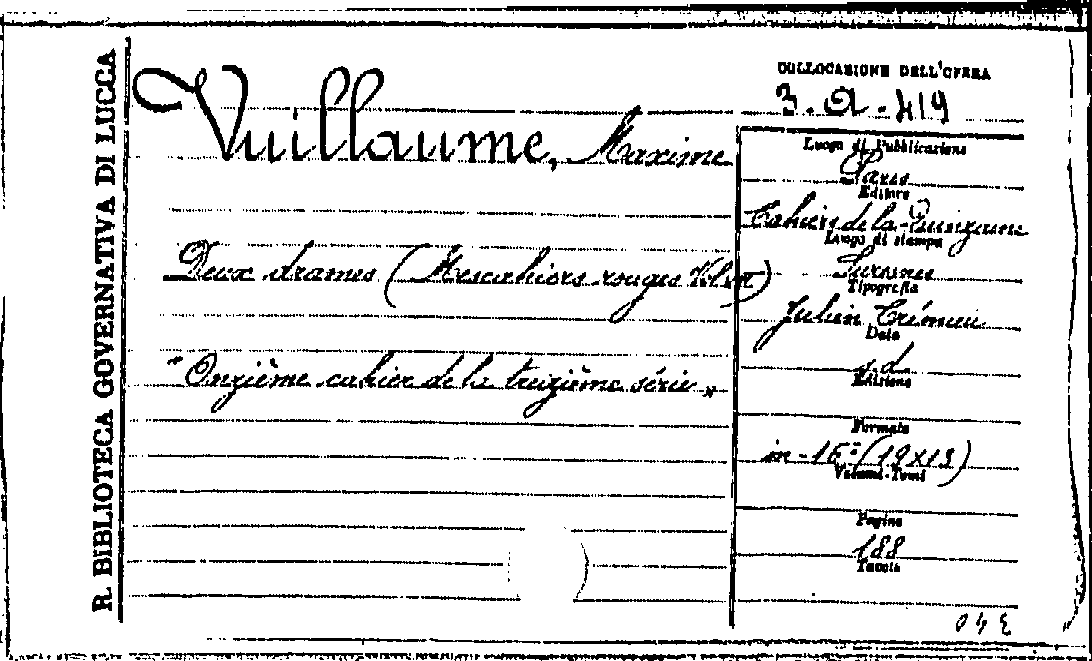 R. BIBLIOTECA GOVERNATIVA DI LUCCA
Vuillaume, Maxime
Deux drames (Mes cahiers rouges
"Onzième cahier de la treizième série"
COLLOCAZIONE DELL'OPERA
3. a. 419
Luogo di Pubblicazione
Paris
Editore
Cahiers de la Quinzaine
Luogo di stampa
Suresnes
Tipografia
Julien Crémieu
Data
s.d.
Edizione
Formato
in-16° (19x13)
Volumi-Tomi
Pagine
188
Tavole